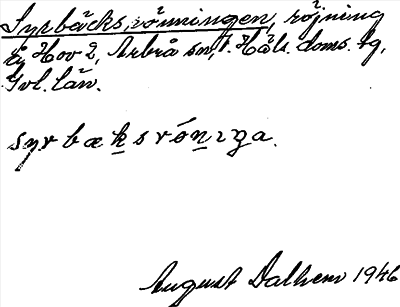 Syrbäcksrönningen, röjning
å Hov 2, Arbrå sn, V. Häls. doms. tg,
Gvl. län.
syrbæksrónıŋa.
August Dalhem 1946